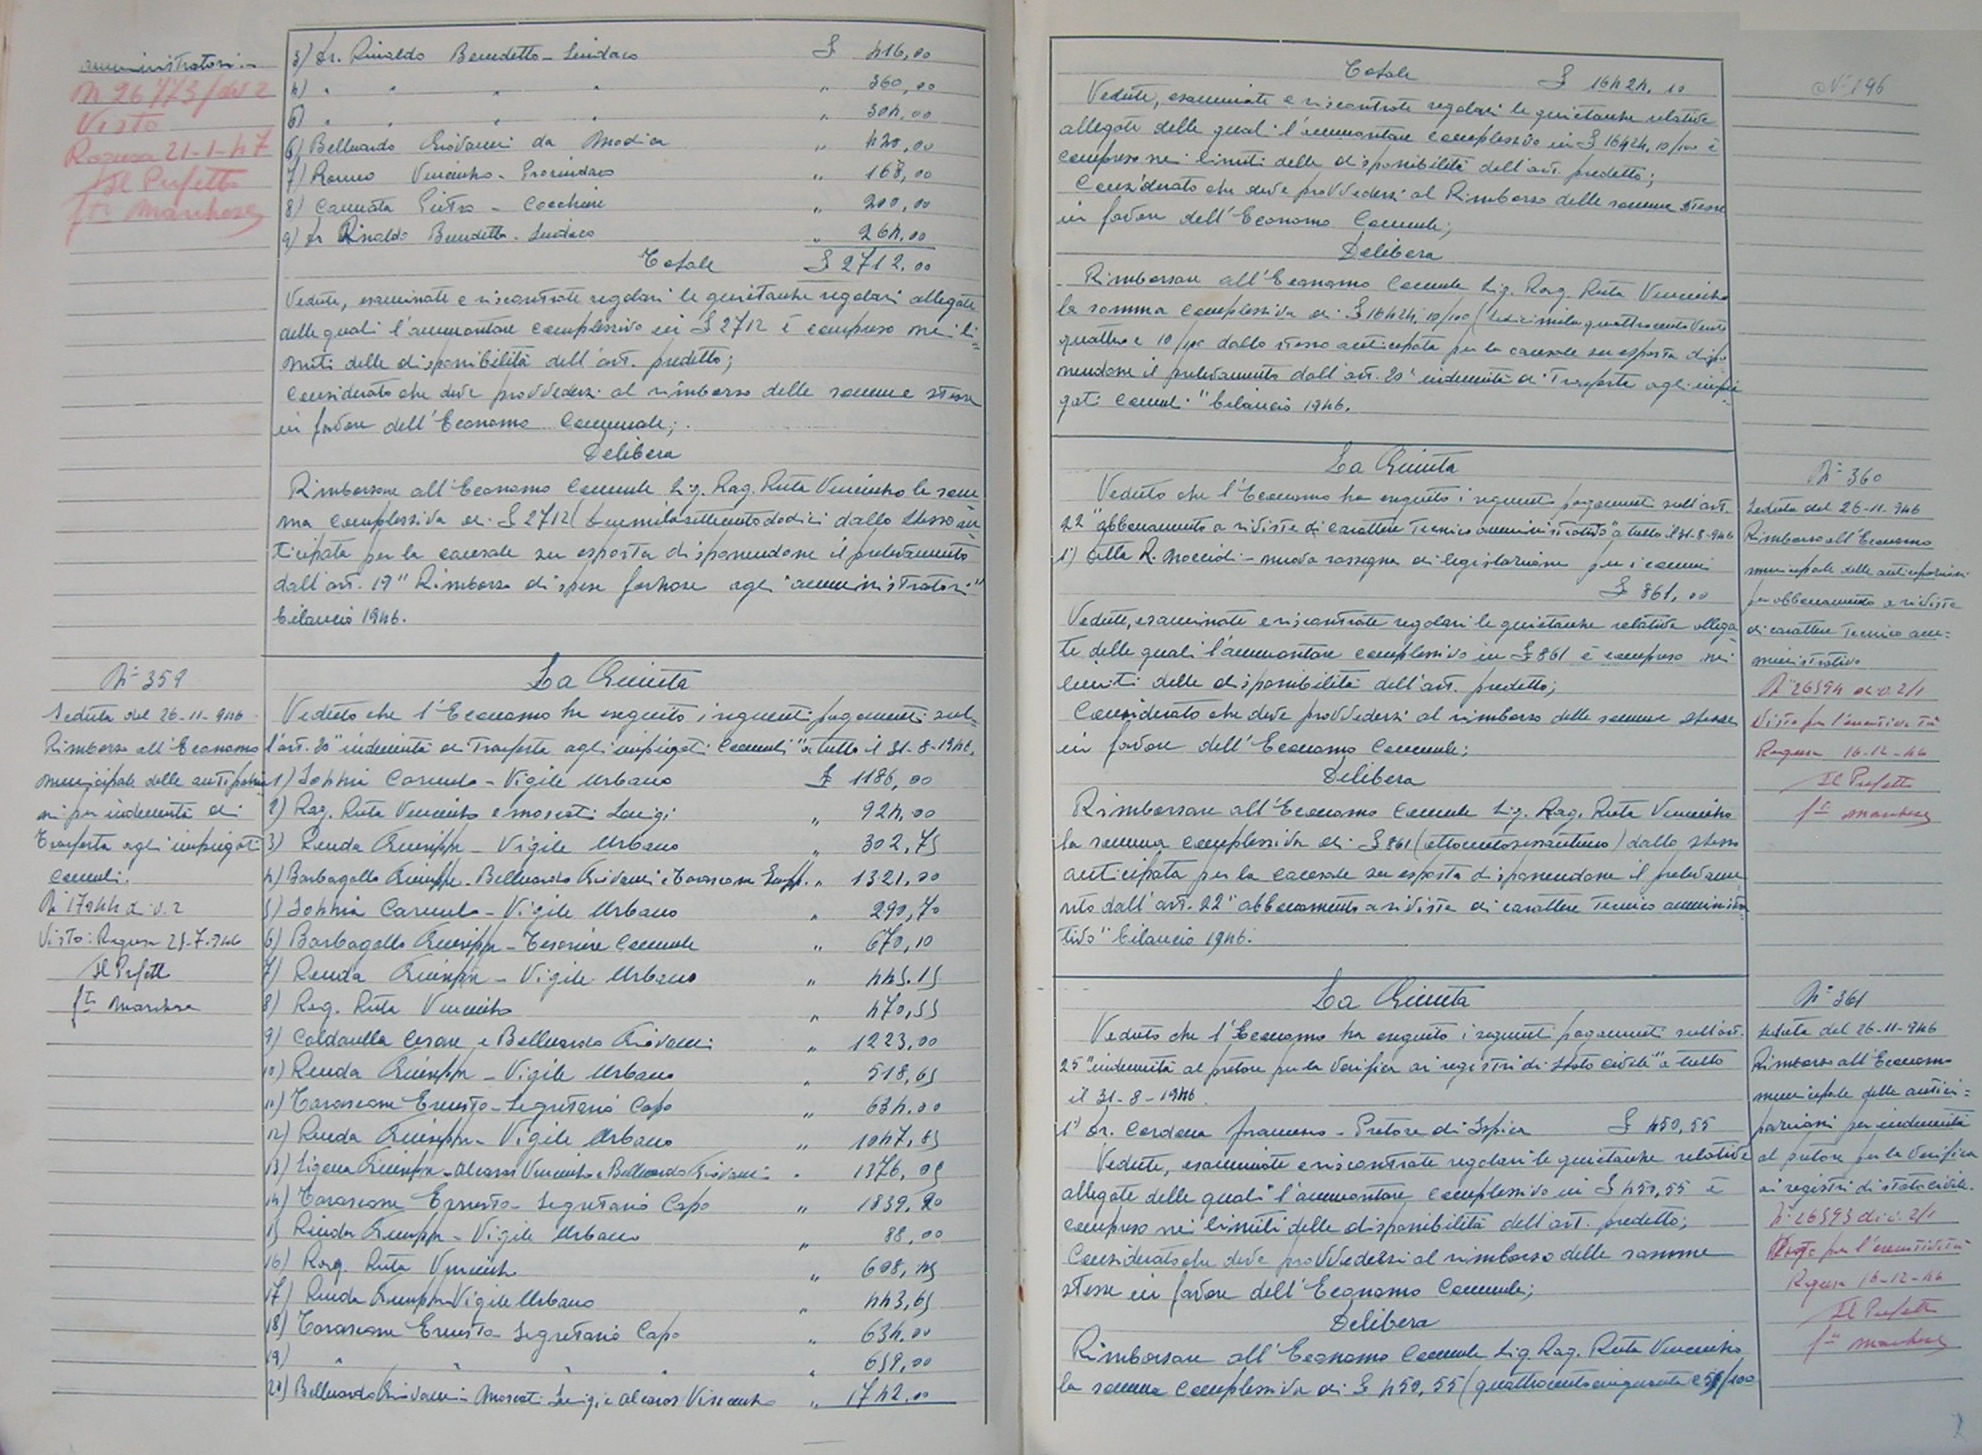 amministratori.-
N 26773/div 2
Visto
Ragusa 21-1-47
Il Prefetto
fto Marchese
3) Dr. Rinaldo Benedetto - Sindaco £ 416,00
4) " " " " " 360,00
5) " " " " " 304,00
6) Belluardo Giovanni da Modica " 420,00
7) Roccuo Vincenzo - Prosindaco " 168,00
8) Cannata Pietro - Cocchiere " 200,00
9) Dr Rinaldo Benedetto - Sindaco " 264,00
Totale £ 2712,00
Vedute, esaminate e riscontrate regolari le quietanze regolari allegate
delle quali l'ammontare complessivo in £ 2712 è compreso nei li=
miti delle disponibilità dell'art. predetto;
Considerato che deve provvedersi al rimborso delle somme stesse
in favore dell'Economo Comunale;
Delibera
Rimborsare all'Economo Comunale Sig. Rag. Ruta Vincenzo la som
ma complessiva di £ 2712 (duemilasettecentododici dallo stesso an
ticipata per la causale su esposta disponendone il prelevamento
dall'art. 19 "Rimborso di spese forzose agli amministratori"
bilancio 1946.
N° 359
Seduta del 26-11-946
Rimborso all'Economo
municipale delle anticipazio
ni per indennità di
Trasferta agli impiegati
comunali.
N° 17044 di v. 2
Visto: Ragusa 25-7-946
Il Prefetto
fto Marchese
La Giunta
Veduto che l'Economo ha eseguito i seguenti pagamenti sul=
l'art. 20 "indennità di Trasferta agli impiegati Comunali" a tutto il 31-8-1946.
1) Sophia Carmelo - Vigile Urbano £ 1186,00
2) Rag. Ruta Vincenzo e Moscati Luigi " 924,00
3) Renda Giuseppe - Vigile Urbano " 302,75
4) Barbagallo Giuseppe - Belluardo Giovanni e Tarascone " 1321,00
5) Sophia Carmelo - Vigile Urbano " 290,70
6) Barbagallo Giuseppe - Tesoriere Comunale " 670,10
7) Renda Giuseppe - Vigile Urbano " 445,15
8) Rag. Ruta Vincenzo " 470,55
9) Caldarella Cesare e Belluardo Giovanni " 1223,00
10) Renda Giuseppe - Vigile Urbano " 518,65
11) Tarascone Ernesto - Segretario Capo " 634,00
12) Renda Giuseppe - Vigile Urbano " 1047,85
13) Giuseppe - Alcaras Vincenzo e Belluardo Giovanni " 1376,05
14) Tarascone Ernesto - Segretario Capo " 1839,20
15 Renda Giuseppe - Vigile Urbano " 88,00
16) Rag. Ruta Vincenzo " 608,45
17) Renda Giuseppe Vigile Urbano " 443,65
18) Tarascone Ernesto - Segretario Capo " 634,00
19) " " " " " 659,00
20) Belluardo Giovanni - Moscati Luigi e Alcaras Vincenzo " 1742,00
Totale £ 16424,10
N° 196
Vedute, esaminate e riscontrate regolari le quietanze relative
allegate delle quali l'ammontare complessivo in £ 16424,10/100 è
compreso nei limiti delle disponibilità dell'art. predetto;
Considerato che deve provvedersi al Rimborso delle somme stesse
in favore dell'Economo Comunale;
Delibera
Rimborsare all'Economo Comunale Sig. Rag. Ruta Vincenzo
la somma complessiva di £ 16424,10/100 (sedicimilaquattrocentoventi
quattro e 10/100 dallo stesso anticipata per la causale su esposta dispo
nendone il prelevamento dall'art. 20 "indennità di Trasferta agli impie
gati Comunali" bilancio 1946.
La Giunta
Veduto che l'Economo ha eseguito i seguenti pagamenti sull'art.
22 "abbonamento a riviste di carattere Tecnico amministrativo" a tutto il 31-8-946
1°) Ditta R. Noccioli - nuova rassegna di legislazione per i comuni
£ 861,00
Vedute, esaminate e riscontrate regolari le quietanze relative allega
te delle quali l'ammontare complessivo in £ 861 è compreso nei
limiti delle disponibilità dell'art. predetto;
Considerato che deve provvedersi al rimborso delle somme stesse
in favore dell'Economo Comunale;
Delibera
Rimborsare all'Economo Comunale Sig. Rag. Ruta Vincenzo
la somma complessiva di £ 861 (ottocentosessantuno) dallo stesso
anticipata per la causale su esposta disponendone il prelevame
nto dall'art. 22 "abbonamento a riviste di carattere Tecnico amministra
tivo" bilancio 1946.
N° 360
Seduta del 26-11-946
Rimborso all'Economo
municipale delle anticipazioni
per abbonamento a riviste
di carattere Tecnico am=
ministrativo
N° 26594 di v. 2/1
Visto per l'esecutività
Ragusa 16-12-46
Il Prefetto
fto Marchese
La Giunta
Veduto che l'Economo ha eseguito i seguenti pagamenti sull'art.
25 "indennità al pretore per la verifica ai registri di stato civile" a tutto
il 31-8-1946.
1° Dr. Cardona Francesco - Pretore di Ispica £ 450,55
Vedute, esaminate e riscontrate regolari le quietanze relative
allegate delle quali l'ammontare complessivo in £ 450,55 è
compreso nei limiti delle disponibilità dell'art. predetto;
Considerato che deve provvedersi al rimborso delle somme
stesse in favore dell'Economo Comunale;
Delibera
Rimborsare all'Economo Comunale Sig. Rag. Ruta Vincenzo
la somma complessiva di £ 450,55 (quattrocentocinquanta e 55/100
N° 361
Seduta del 26-11-946
Rimborso all'Economo
municipale delle antici=
pazioni per indennità
al pretore per la verifica
ai registri di stato civile.
N° 26593 di v. 2/1
Visto per l'esecutività
Ragusa 16-12-46
Il Prefetto
fto Marchese